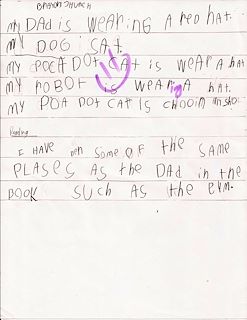 BRANDN CHURCH
my DaD is weAriNG A reD hat.
my DOG i SAt.
my POCA DOt CAt is weAr A hat
my roBOt is weArinA hat.
my POA DOt CAt is chooin mi sho.
Reading
I HAVE ben Some OF the SAME
PLASES AS the DAD in the
BOOK SUCH AS the GYM.